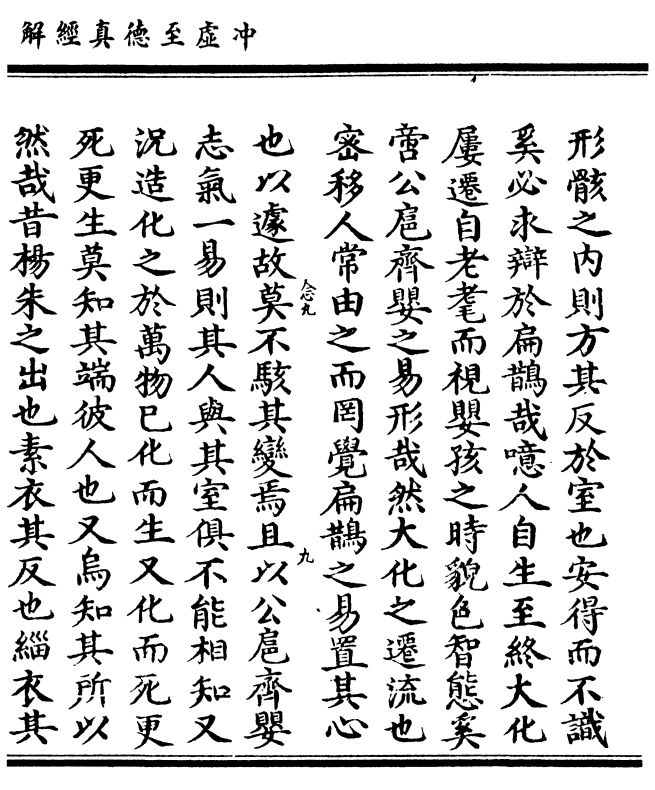 冲虛至德真經解
形骸之内則方其反於室也安得而不識
奚必求辯於扁鵲哉噫人自生至終大化
屢遷自老耄而視嬰孩之時貌色智態奚
啻公扈齊嬰之易形哉然大化之遷流也
密移人常由之而罔覺扁鵲之易置其心
也以遽故莫不駭其變焉且以公扈齊嬰
志氣一易則其人與其室俱不能相知又
況造化之於萬物已化而生又化而死更
死更生莫知其端彼人也又烏知其所以
然哉昔楊朱之出也素衣其反也緇衣其
念九
九